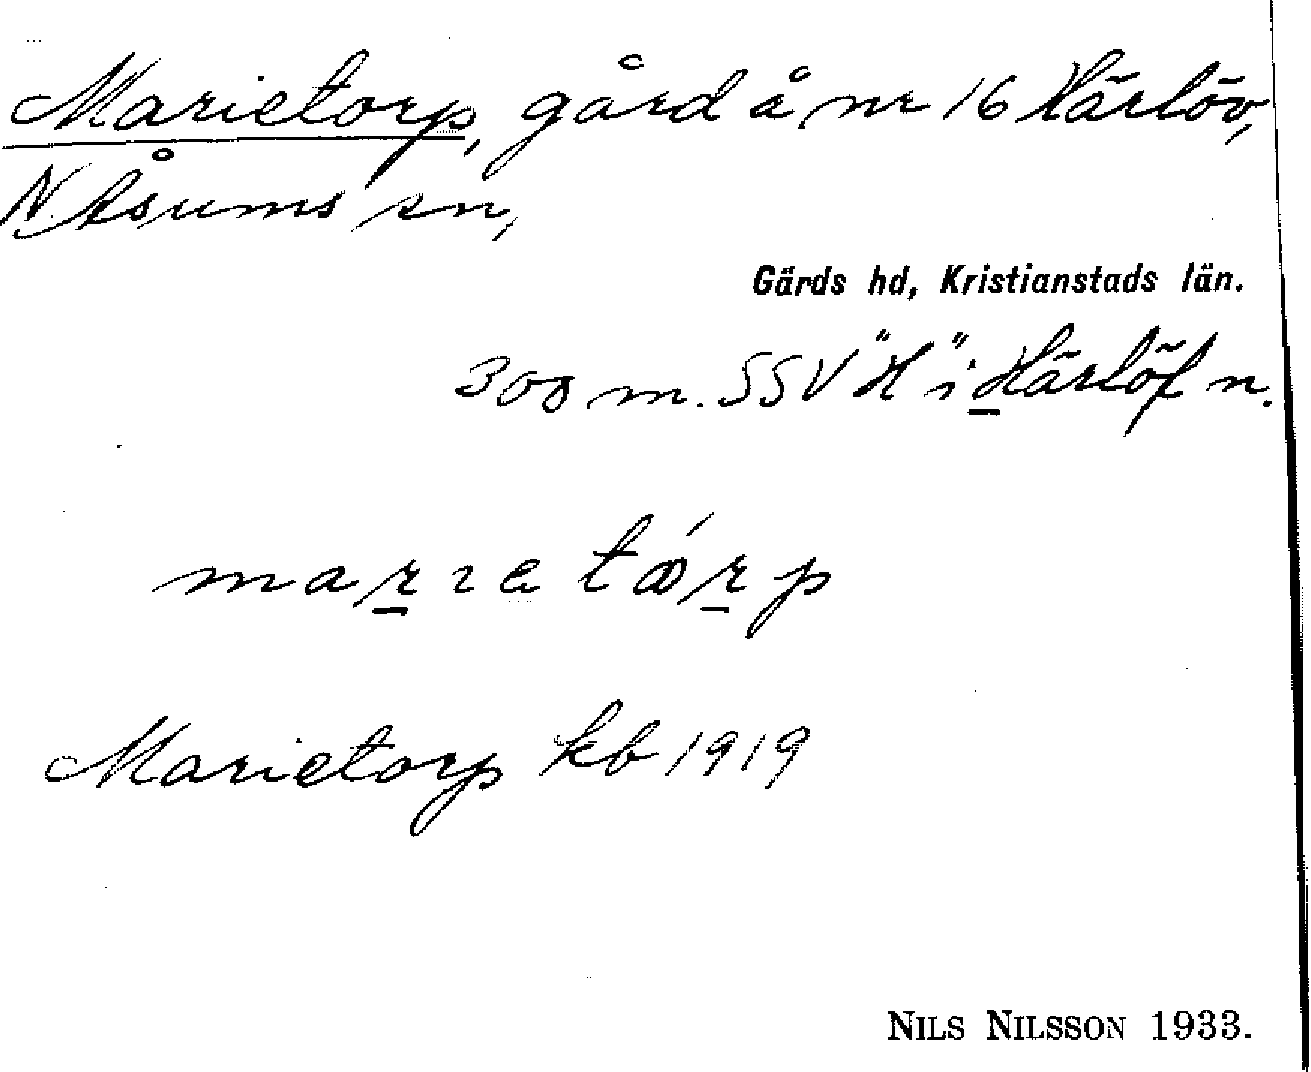 Marietorp, gård å nr 16 Härlöv,
N. Åsums sn,
Gärds hd, Kristianstads län.
300 m. SSV "H" i Härlöf n.
Marietorp kb 1919
NILS NILSSON 1933.